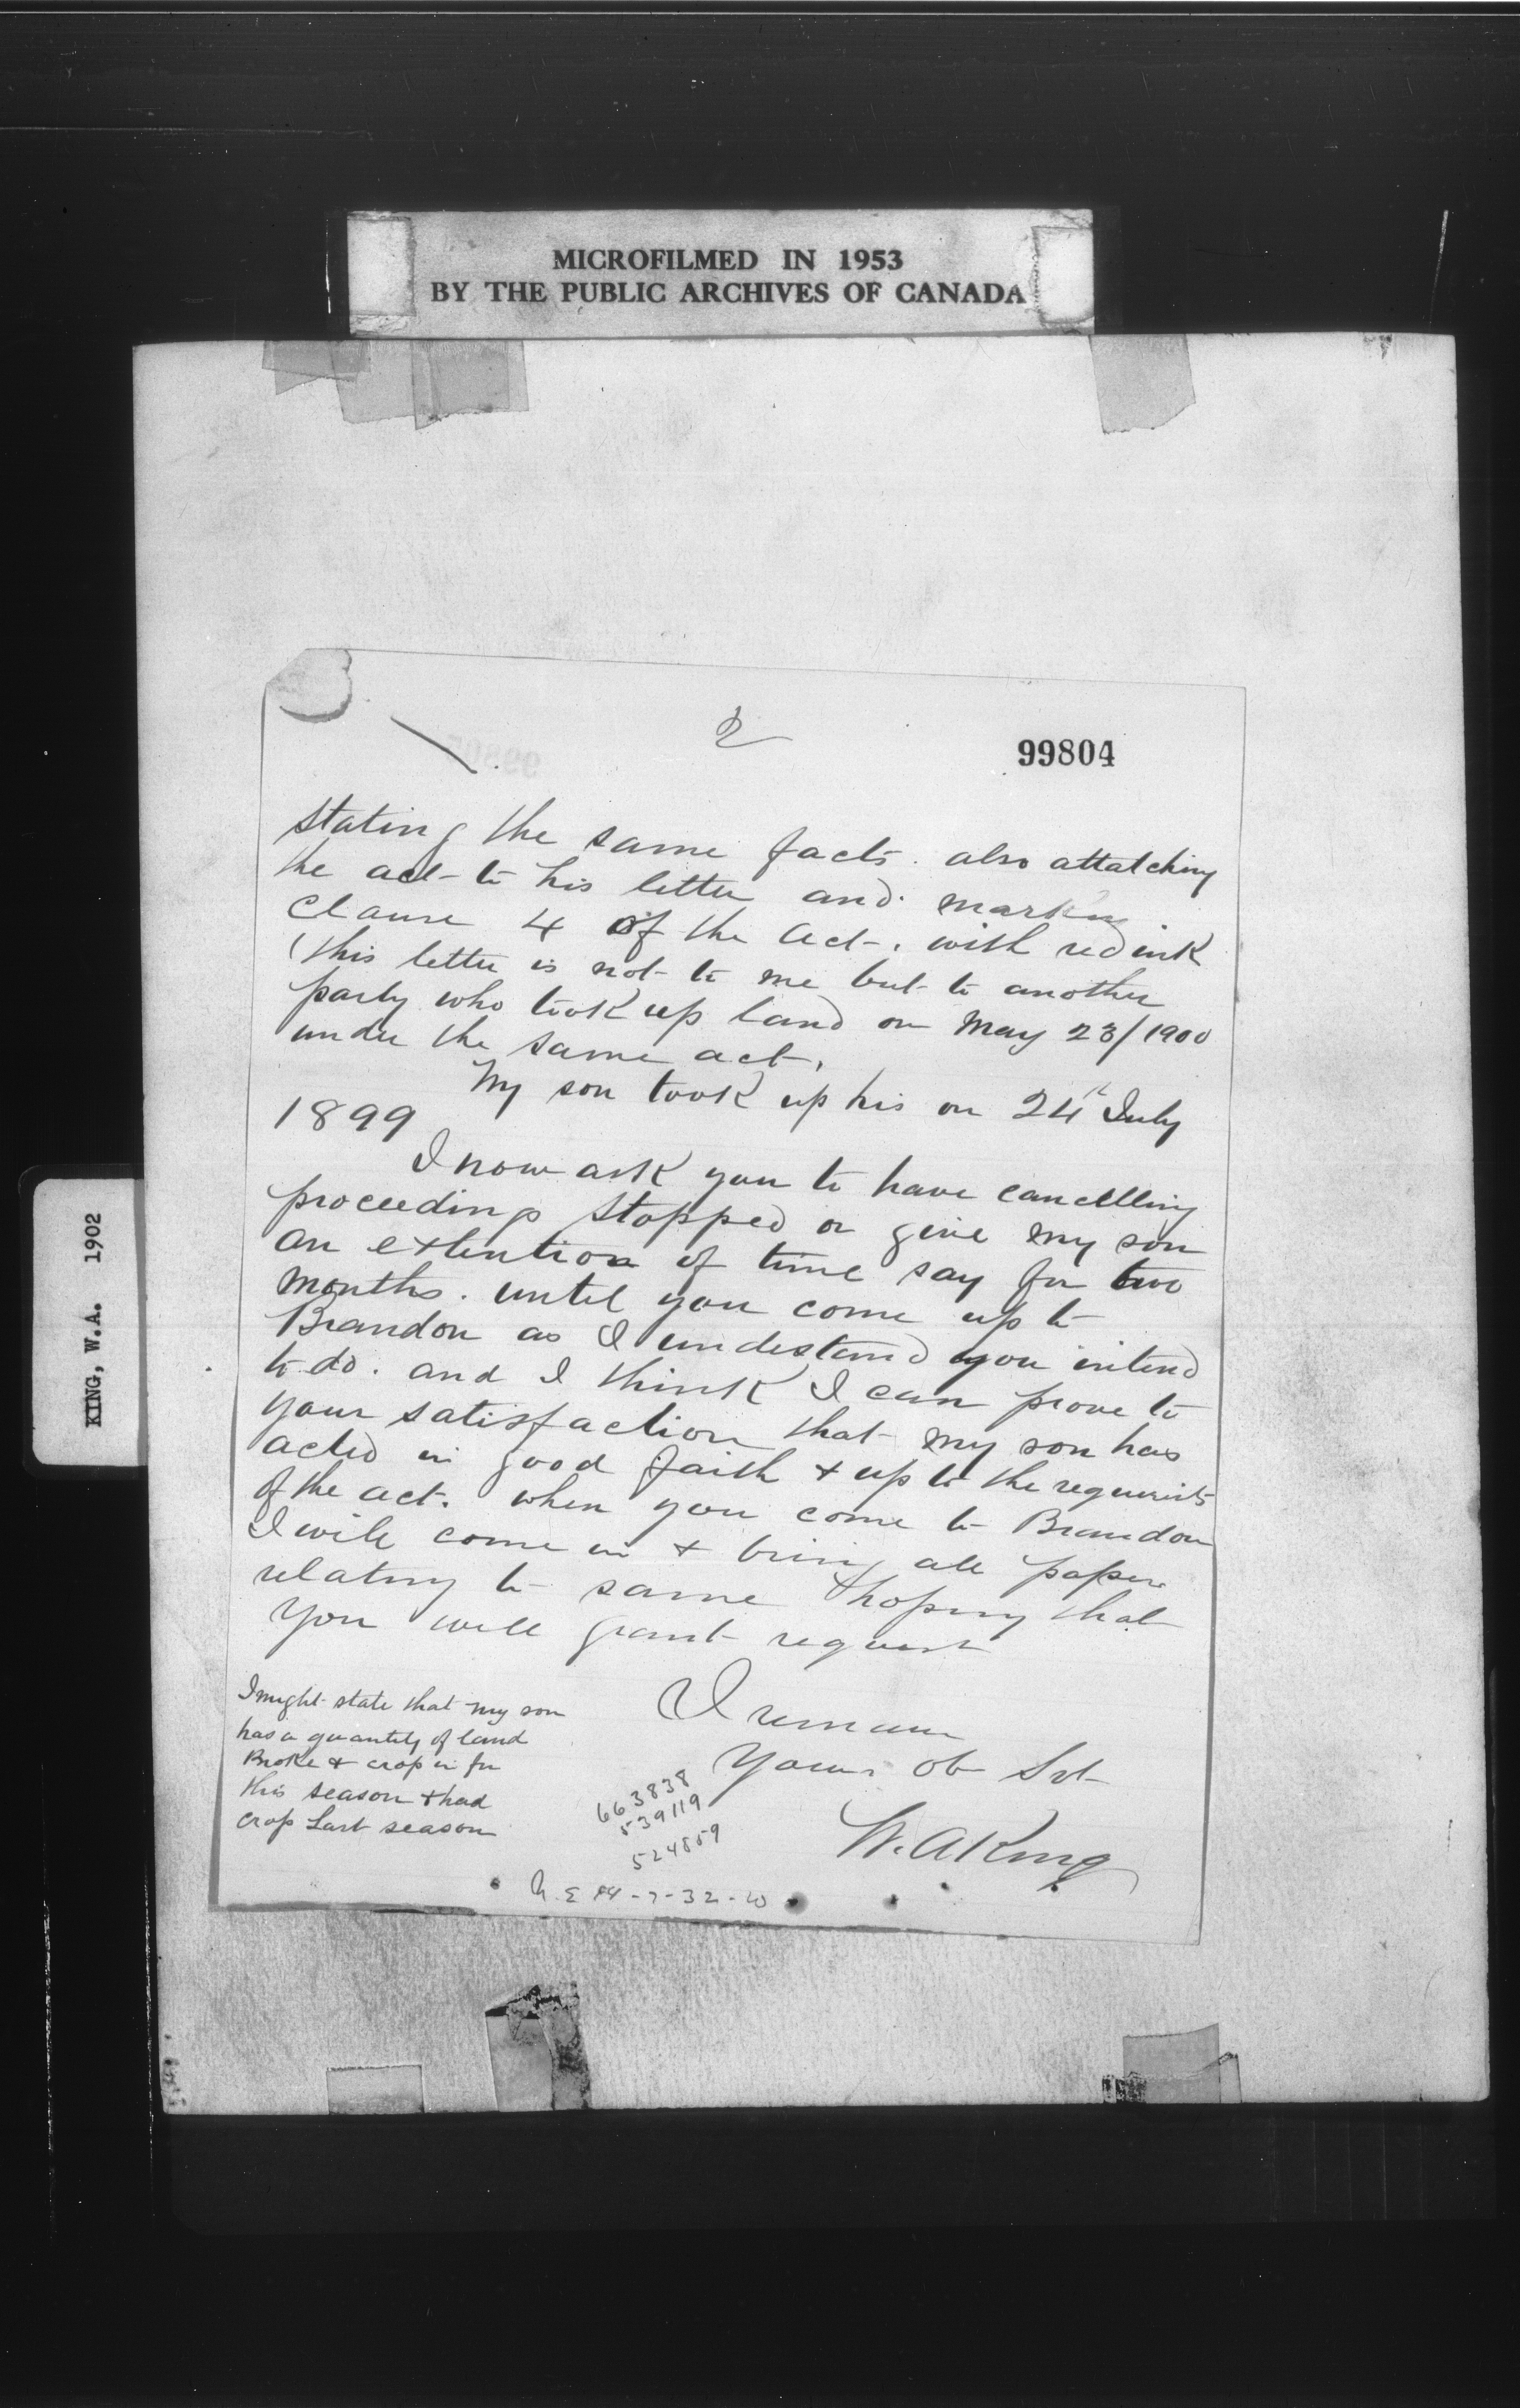 MICROFILMED IN 1953
BY THE PUBLIC ARCHIVES OF CANADA
KING, W.A. 1902
2
99804
stating the same facts. also attatching
the act to his letter and marking
Clause 4 of the Act. with red ink
(this letter is not to me but to another
party who took up land on May 23/1900
under the same act.
My son took up his on 24th July
1899
I now ask you to have cancelling
proceedings stopped or give my son
an extention of time say for two
months. until you come up to
Brandon as I undestand you intend
to do. and I think I can prove to
your satisfaction that my son has
acted in good faith & up to the
of the act. when you come to Brandon
I will come in & bring all papers
relating to same & hoping that
you will grant request
I remain
Your Ob Svt
W. A King
I might state that my son
has a quantity of land
Broke & crop in for
this season & had
crop Last season
663838
539119
524859
N.E 14-7-32-W